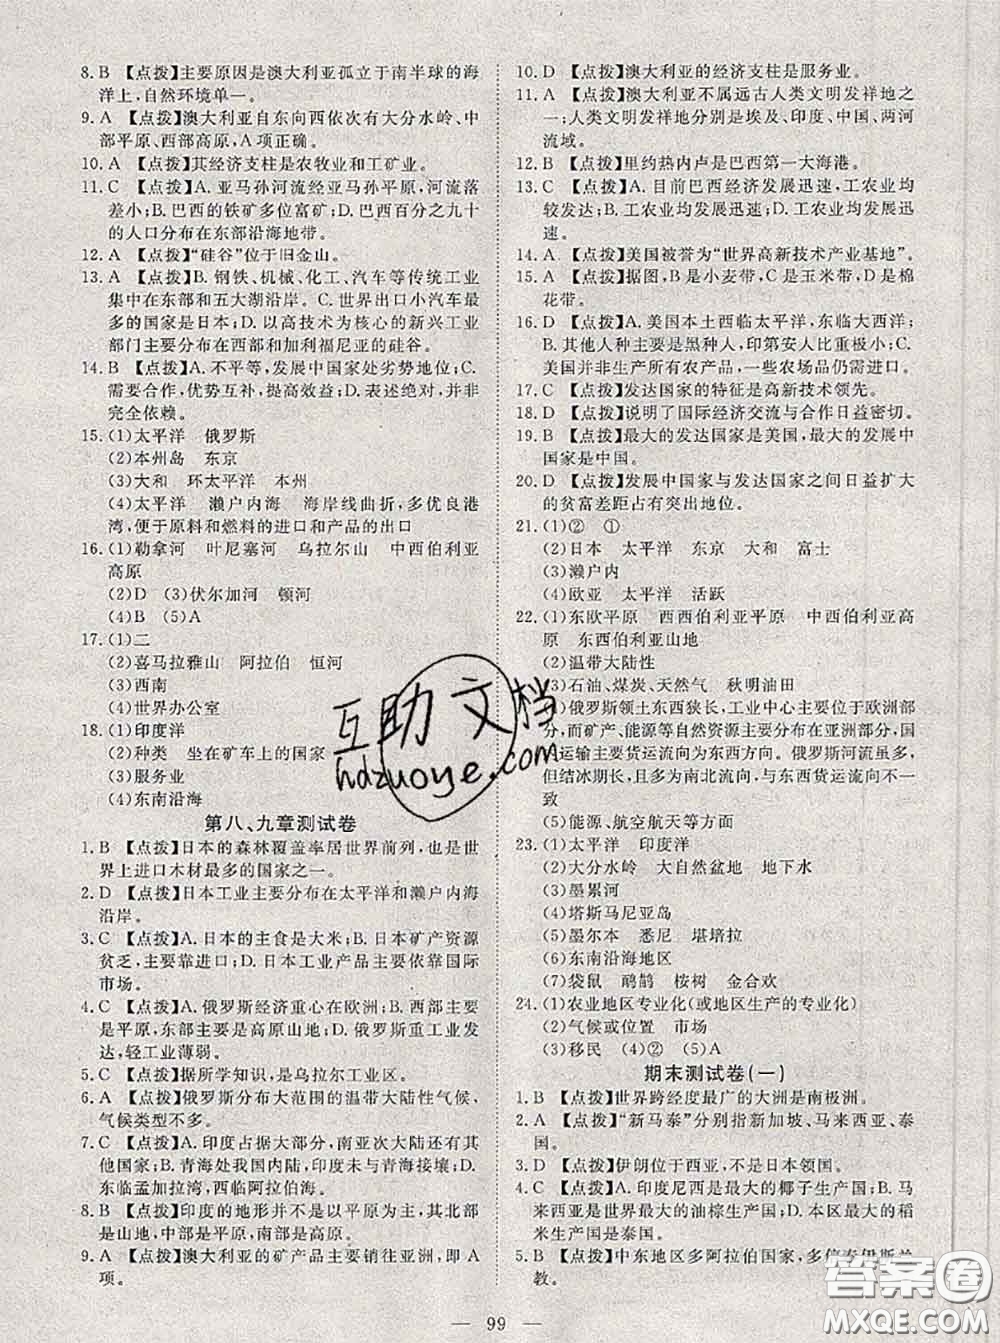 8. B 【点拨】主要原因是澳大利亚孤立于南半球的海
洋上,自然环境单一。
9. A 【点拨】澳大利亚自东向西依次有大分水岭、中
部平原、西部高原,A项正确。
10. A 【点拨】其经济支柱是农牧业和工矿业。
11. C 【点拨】A. 亚马孙河流经亚马孙平原,河流落
差小;B. 巴西的铁矿多位富矿;D. 巴西百分之九十
的人口分布在东部沿海地带。
12. A 【点拨】“硅谷”位于旧金山。
13. A 【点拨】B. 钢铁、机械、化工、汽车等传统工业
集中在东部和五大湖沿岸。C. 世界出口小汽车最
多的国家是日本;D. 以高技术为核心的新兴工业
部门主要分布在西部和加利福尼亚的硅谷。
14. B 【点拨】A. 不平等,发展中国家处劣势地位;C.
需要合作,优势互补,提高效益;D. 表述绝对,并非
完全依赖。
15. (1)太平洋 俄罗斯
(2)本州岛 东京
(3)大和 环太平洋 本州
(4)太平洋 濑户内海 海岸线曲折,多优良港
湾,便于原料和燃料的进口和产品的出口
16. (1)勒拿河 叶尼塞河 乌拉尔山 中西伯利亚
高原
(2)D (3)伏尔加河 顿河
(4)B (5)A
17. (1)二
(2)喜马拉雅山 阿拉伯 恒河
(3)西南
(4)世界办公室
18. (1)印度洋
(2)种类 坐在矿车上的国家
(3)服务业
(4)东南沿海
第八、九章测试卷
1. B 【点拨】日本的森林覆盖率居世界前列,也是世
界上进口木材最多的国家之一。
2. D 【点拨】日本工业主要分布在太平洋和濑户内海
沿岸。
3. C 【点拨】A. 日本的主食是大米;B. 日本矿产资源
贫乏,主要靠进口;D. 日本工业产品主要依靠国际
市场。
4. C 【点拨】A. 俄罗斯经济重心在欧洲;B. 西部主要
是平原,东部主要是高原山地;D. 俄罗斯重工业发
达,轻工业薄弱。
5. C 【点拨】据所学知识,是乌拉尔工业区。
6. A 【点拨】俄罗斯分布大范围的温带大陆性气候,
气候类型不多。
7. C 【点拨】A. 印度占据大部分,南亚次大陆还有
其他国家;B. 青海处我国内陆,印度未与青海接壤;D.
东临孟加拉湾,西临阿拉伯海。
8. B 【点拨】印度的地形并不是以平原为主,其北部
是山地,中部是平原,南部是高原。
9. A 【点拨】澳大利亚的矿产品主要销往亚洲,即A
项。
10. D 【点拨】澳大利亚的经济支柱是服务业。
11. A 【点拨】澳大利亚不属远古人类文明发祥地之
一;人类文明发祥地分别是埃及、印度、中国、两河
流域。
12. B 【点拨】里约热内卢是巴西第一大海港。
13. C 【点拨】A. 目前巴西经济发展迅速,工农业均
较发达;B. 工农业均发展迅速;D. 工农业均发展迅
速。
14. A 【点拨】美国被誉为“世界高新技术产业基地”。
15. A 【点拨】据图,B是小麦带,C是玉米带,D是棉
花带。
16. D 【点拨】A. 美国本土西临太平洋,东临大西洋;
B. 其他人种主要是黑种人,印第安人比重极小;C.
美国并非生产所有农产品,一些农场品仍然进口。
17. C 【点拨】发达国家的特征是高新技术领先。
18. D 【点拨】说明了国际经济交流与合作日益密切。
19. B 【点拨】最大的发达国家是美国,最大的发展中
国家是中国。
20. D 【点拨】发展中国家与发达国家之间日益扩大
的贫富差距占有突出地位。
21. (1)② ①
(2)日本 太平洋 东京 大和 富士
(3)濑户内
(4)欧亚 太平洋 活跃
22. (1)东欧平原 西西伯利亚平原 中西伯利亚高
原 东西伯利亚山地
(2)温带大陆性
(3)石油、煤炭、天然气 秋明油田
(4)俄罗斯领土东西狭长,工业中心主要位于欧洲部
分,而矿产、能源等自然资源主要分布在亚洲部分,国
内运输主要货运流向为东西方向。俄罗斯河流虽多,
但结冰期长,且多为南北流向,与东西货运流向不一
致
(5)能源、航空航天等方面
23. (1)太平洋 印度洋
(2)大分水岭 大自流盆地 地下水
(3)墨累河
(4)塔斯马尼亚岛
(5)墨尔本 悉尼 堪培拉
(6)东南沿海地区
(7)袋鼠 鸸鹋 桉树 金合欢
24. (1)农业地区专业化(或地区生产的专业化)
(2)气候或位置 市场
(3)移民 (4)② (5)A
期末测试卷(一)
1. B 【点拨】世界跨经度最广的大洲是南极洲。
2. A 【点拨】“新马泰”分别指新加坡、马来西亚、泰
国。
3. D 【点拨】伊朗位于西亚,不是日本领国。
4. C 【点拨】A. 印度尼西是最大的椰子生产国;B. 马
来西亚是世界最大的油棕生产国;D. 本区最大的稻
米生产国是泰国。
5. B 【点拨】中东地区多阿拉伯国家,多信奉伊斯兰
教。
99
互助文档
hdzuoye.com
答案圈
MXQE.COM